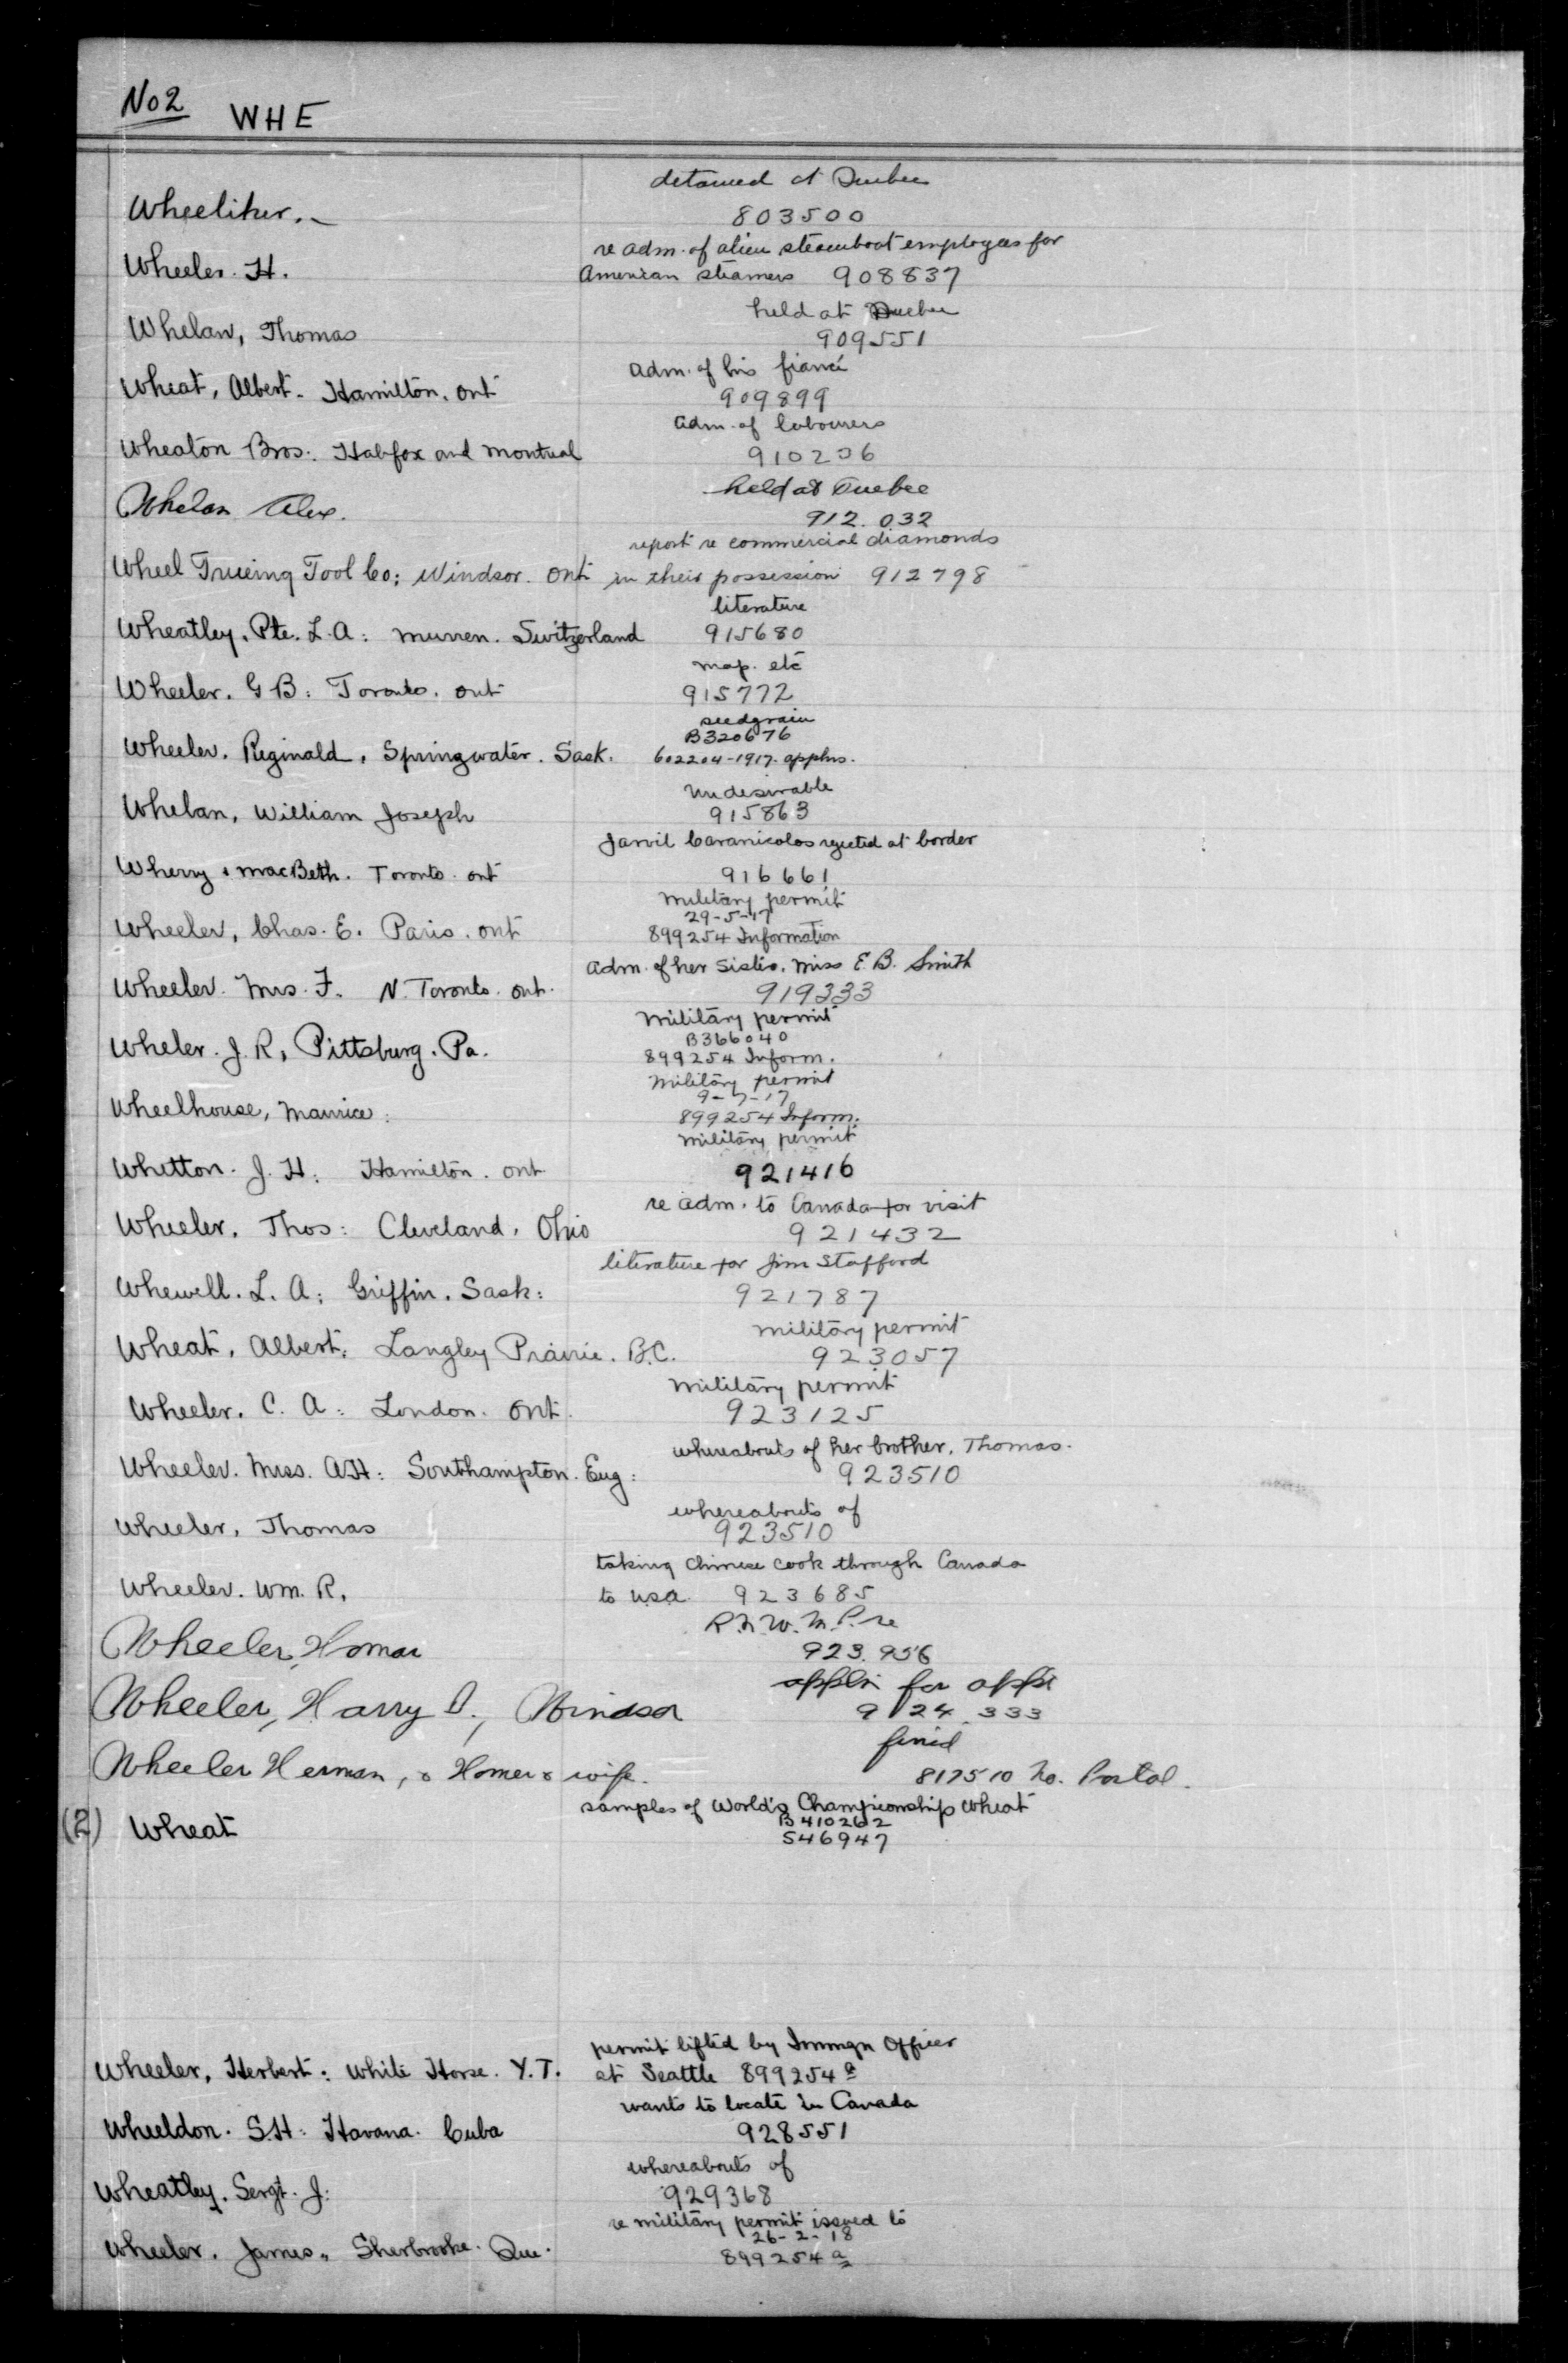 No 2 WHE
detained at Quebec
Wheeliker. 803500
re adm. of alien steamboat employees for
Wheeler. H. American steamers 908837
held at Quebec
Whelan, Thomas 909551
adm. of his fiancé
Wheat, Albert. Hamilton. Ont 909899
adm. of labourers
Wheaton Bros. Halifax and Montreal 910206
held at Quebec
Whelan Alex. 912.032
report re commercial diamonds
Wheel Trueing Tool Co; Windsor. Ont in their possession 912798
literature
Wheatley, Pte. L.A: Murren. Switzerland 915680
map. etc
Wheeler. G B: Toronto. ont 915772
seedgrain
B320676
Wheeler. Reginald, Springwater. Sask. 602204-1917. applns.
Undesirable
Whelan, William Joseph 915863
Jarvil Caranicolos rejected at border
Wherry & MacBeth. Toronto. ont 916661
Military permit
29-5-17
Wheeler, Chas. E. Paris. ont 899254 Information
adm. of her sister, Miss E.B. Smith
Wheeler. Mrs. F. N. Toronto. ont. 919333
Military permit
B366040
Wheler. J. R, Pittsburg. Pa. 899254 Inform.
Military permit
9-7-17
Wheelhouse, Maurice: 899254 Inform.
Military permit
Whetton. J. H: Hamilton. ont 921416
re adm. to Canada for visit
Wheeler, Thos: Cleveland, Ohio 921432
literature for Jim Stafford
Whewell. L. A: Griffin. Sask: 921787
Military permit
Wheat, Albert: Langley Prairie. B.C. 923057
Military permit
Wheeler. C. A: London. Ont. 923125
whereabouts of her brother, Thomas.
Wheeler. Miss. A H: Southampton. Eng: 923510
whereabouts of
Wheeler, Thomas 923510
taking Chinese cook through Canada
Wheeler. Wm. R. to U.S.A. 923685
R.N.W.M.P. re
Wheeler, Homar 923.956
appln for appt
Wheeler, Harry D., Windsor 924.333
fined
Wheeler Herman, & Homer & wife. 817510 No. Portal.
samples of World's Championship Wheat
B410262
(2) Wheat 546947
permit lifted by Immgn Officer
Wheeler, Herbert: White Horse. Y.T. at Seattle 899254 a
wants to locate in Canada
Wheeldon. S.H: Havana. Cuba 928551
whereabouts of
Wheatley. Sergt. J: 929368
re military permit issued to
26-2-18
Wheeler. James, Sherbrooke. Que. 899254 a